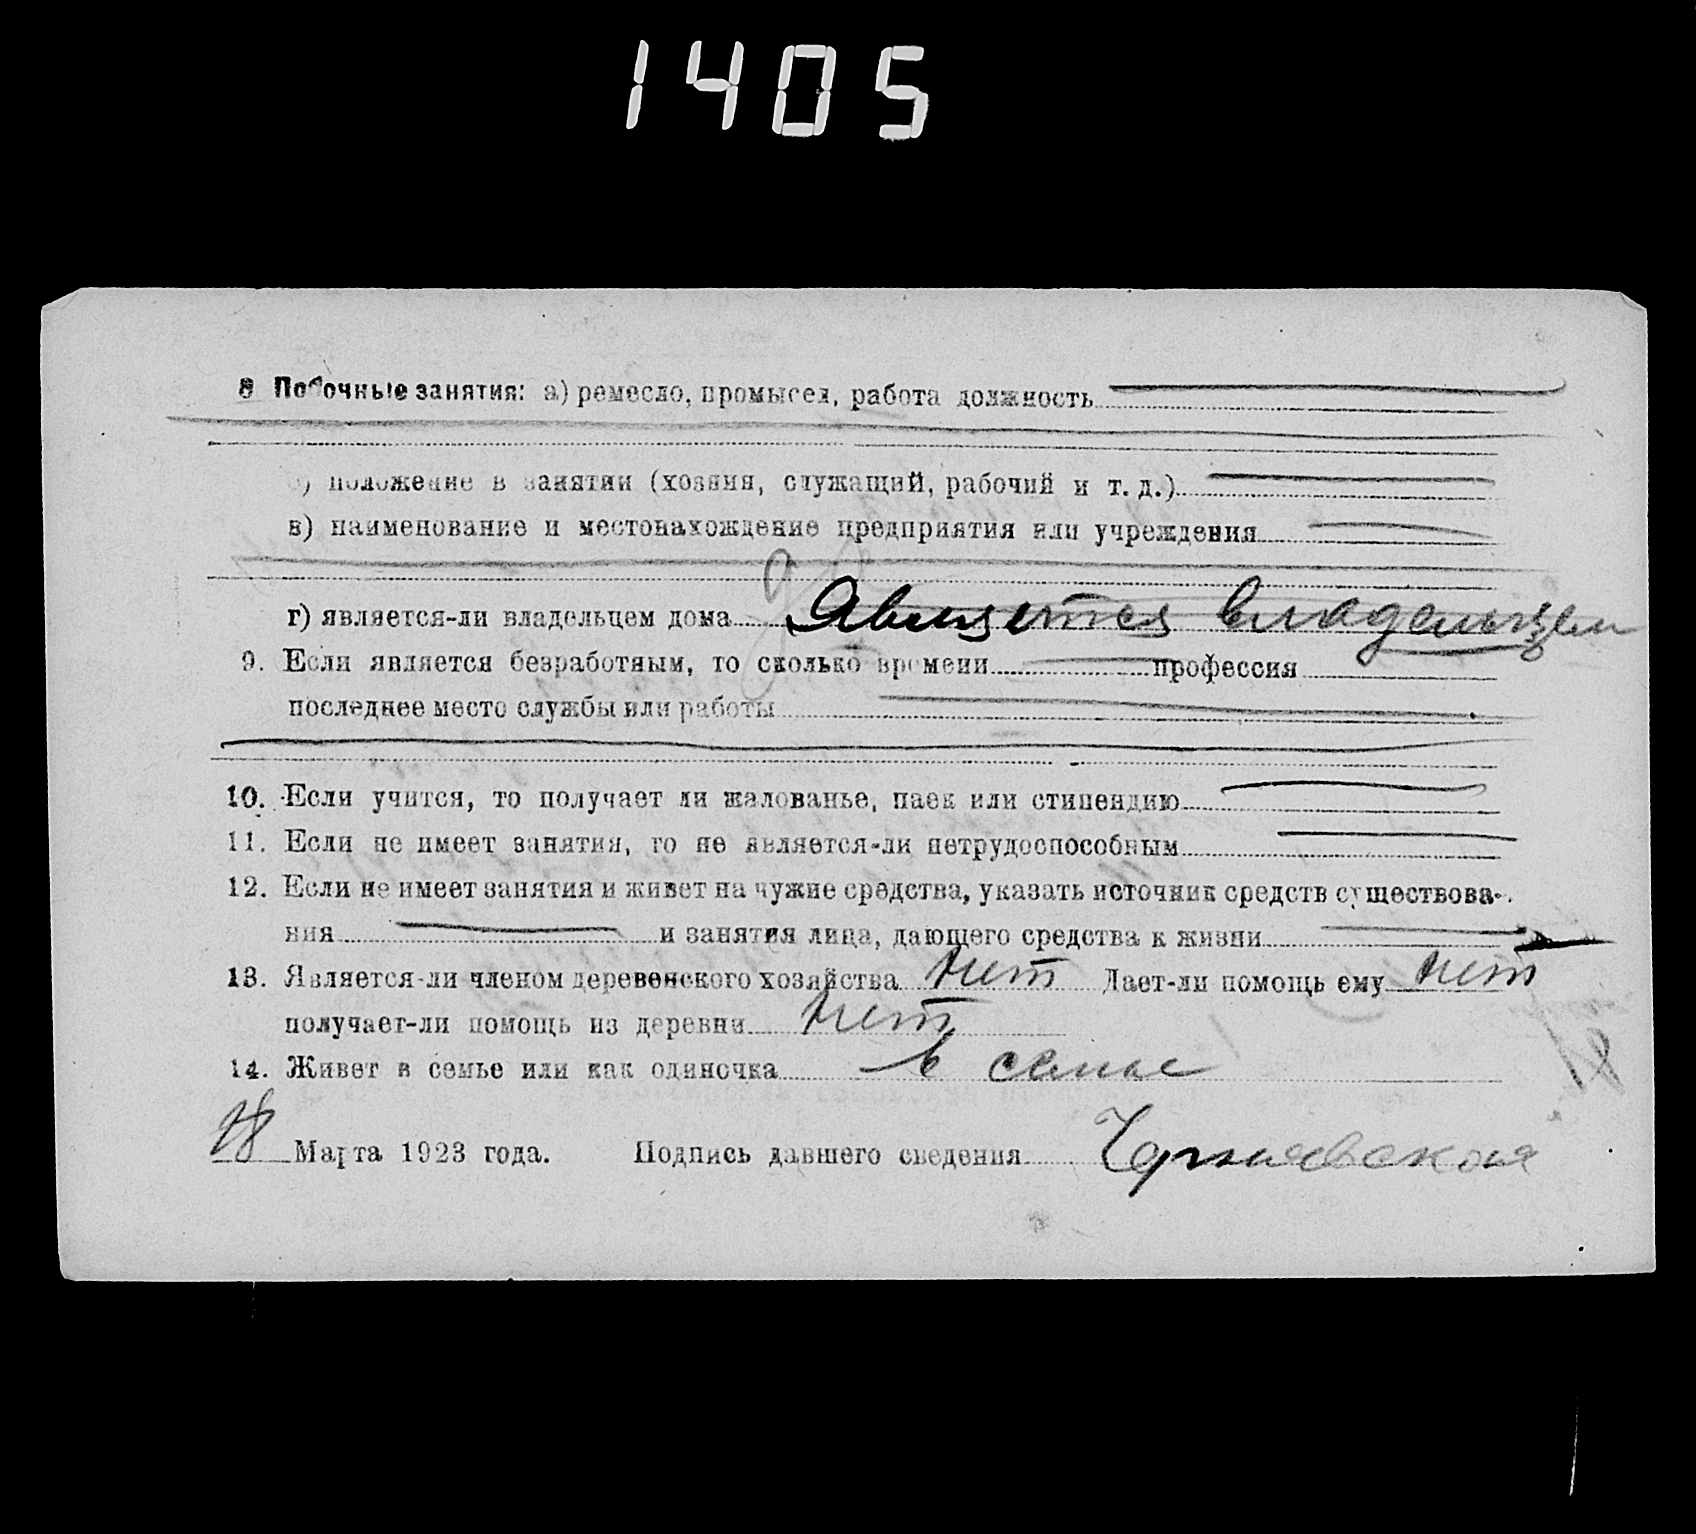 1405
8 Побочные занятия: а) ремесло, промысел, работа должность
б) положение в занятии (хозяин, служащий, рабочий и т. д.)
в) наименование и местонахождение предприятия или учреждения
г) является-ли владельцем дома Является владельцем
9. Если является безработным, то сколько времени профессия
последнее место службы или работы
10. Если учится, то получает ли жалованье, паек или стипендию
11. Если не имеет занятия, то не является-ли нетрудоспособным
12. Если не имеет занятия и живет на чужие средства, указать источник средств существова-
ния и занятия лица, дающего средства к жизни
13. Является-ли членом деревенского хозяйства нет Дает-ли помощь ему нет
получает-ли помощь из деревни нет
14. Живет в семье или как одиночка в семье
18 Марта 1923 года. Подпись давшего сведения Чернявская